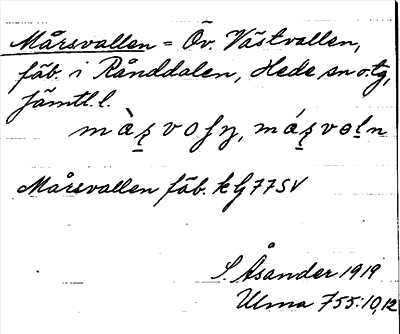 Mårsvallen = Öv. Västvallen,
fäb. i Rånddalen, Hede sn o. tg,
Jämtl. l.
Mårsvallen fäb. kG77SV
S. Åsander 1919
Ulma 755:10,12